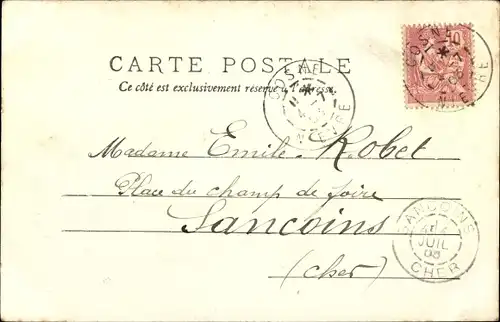 CARTE POSTALE
Ce côté est exclusivement réservé à l'adresse
COSNE
NIEVRE
COSNE
NIEVRE
10
Madame Emile Robet
Place du champ de foire
Sancoins
(Cher)
SANCOINS
JUIL
CHER